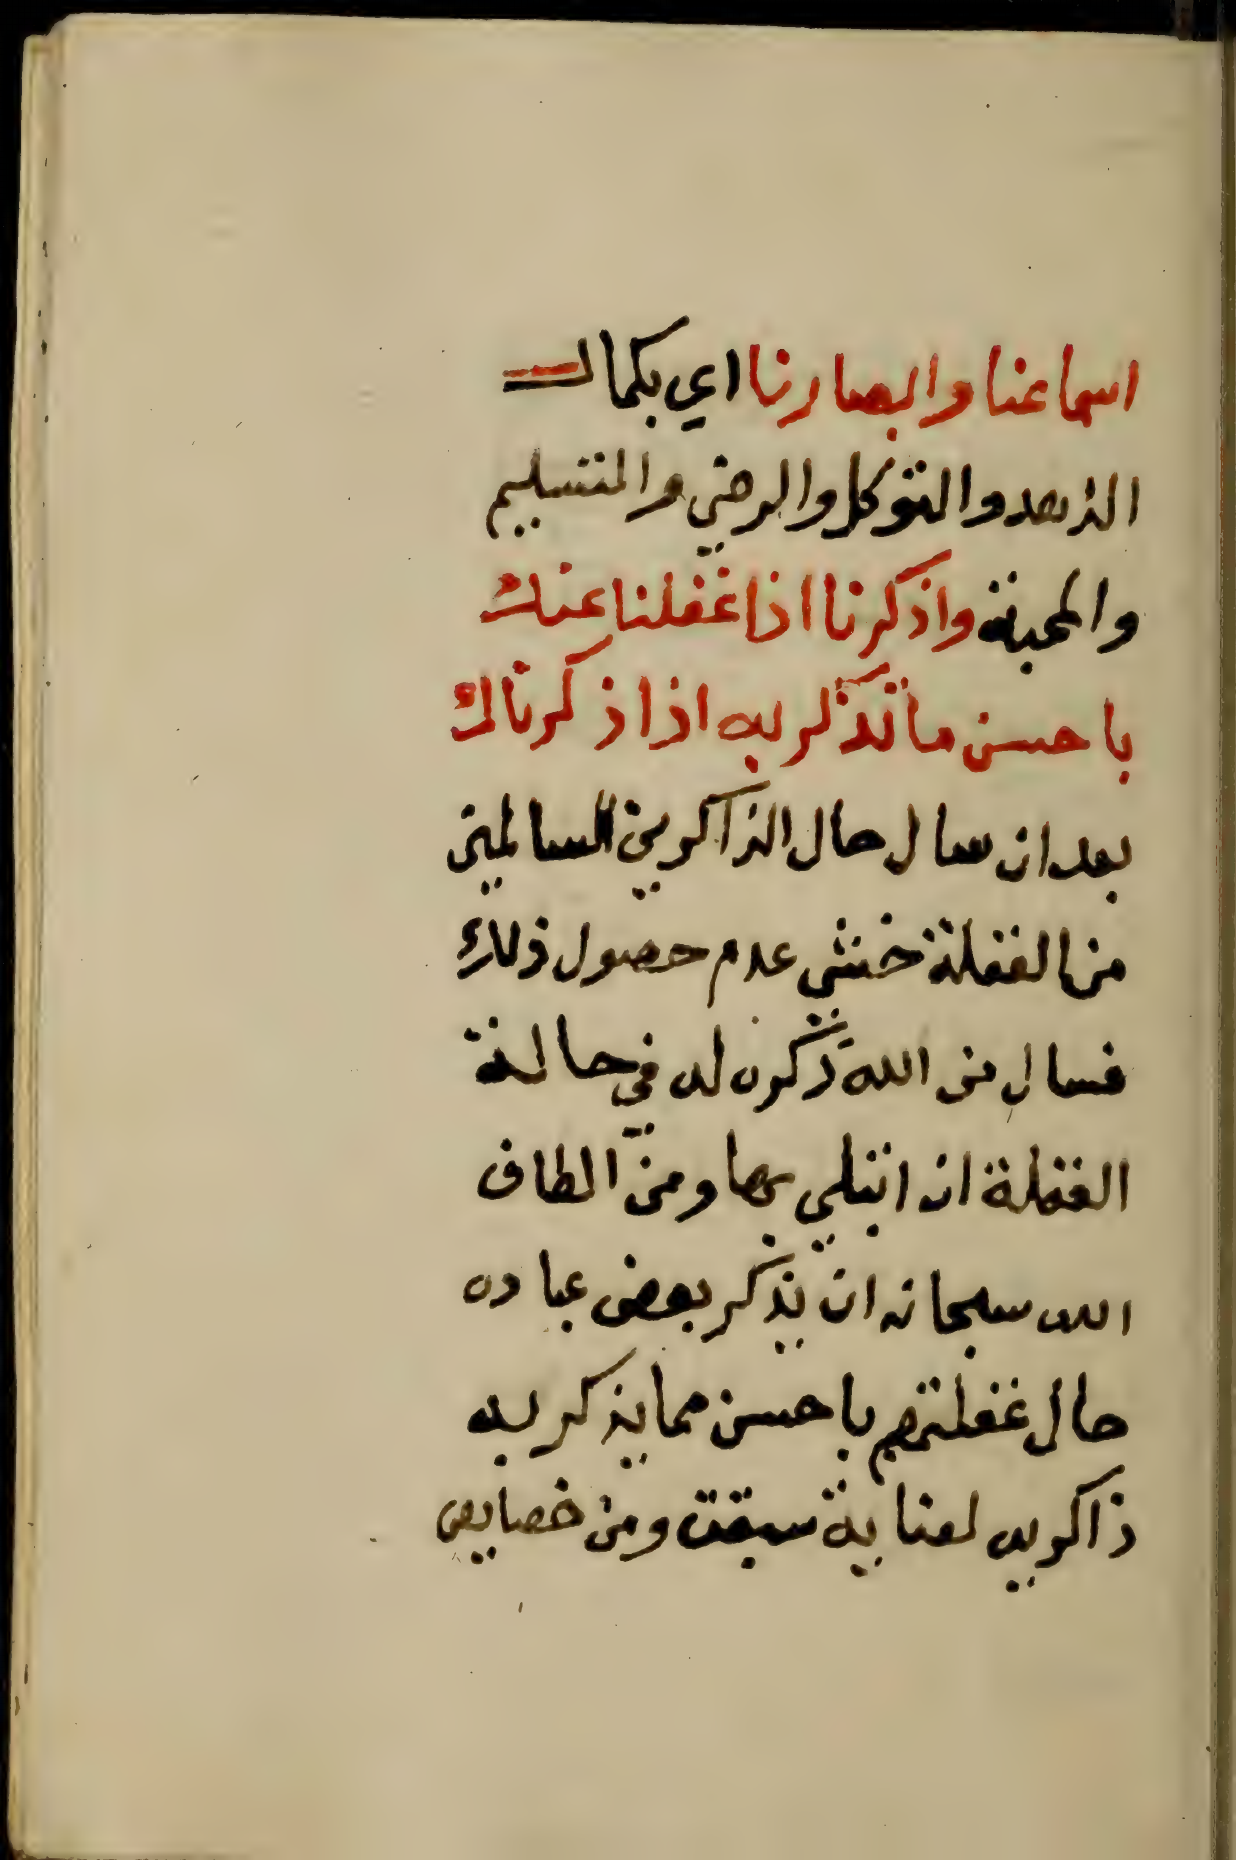 اسماعنا وابصارنا اي بكمال
الزهد والتوكل والرضي والتسليم
والمحبة واذكرنا اذا غفلنا عنك
باحسن ما تذكر به اذا ذكرناك
بعد ان سال حال الذاكرين السالمين
من الغفلة خشي عدم حصول ذلك
فسال من الله ذكره له في حالة
الغفلة ان ابتلي بها ومن الطاف
الله سبحانه ان يذكر بعض عباده
حال غفلتهم باحسن مما يذكر به
ذاكريه لعناية سبقت ومن خصايص